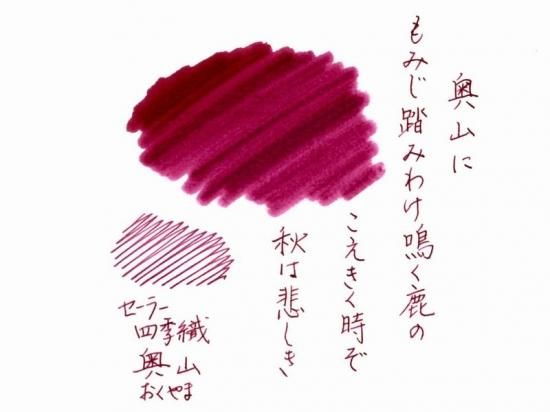 奥山に
もみじ踏みわけ鳴く鹿の
こえきく時ぞ
秋は悲しき
セーラー
四季織
奥山
おくやま